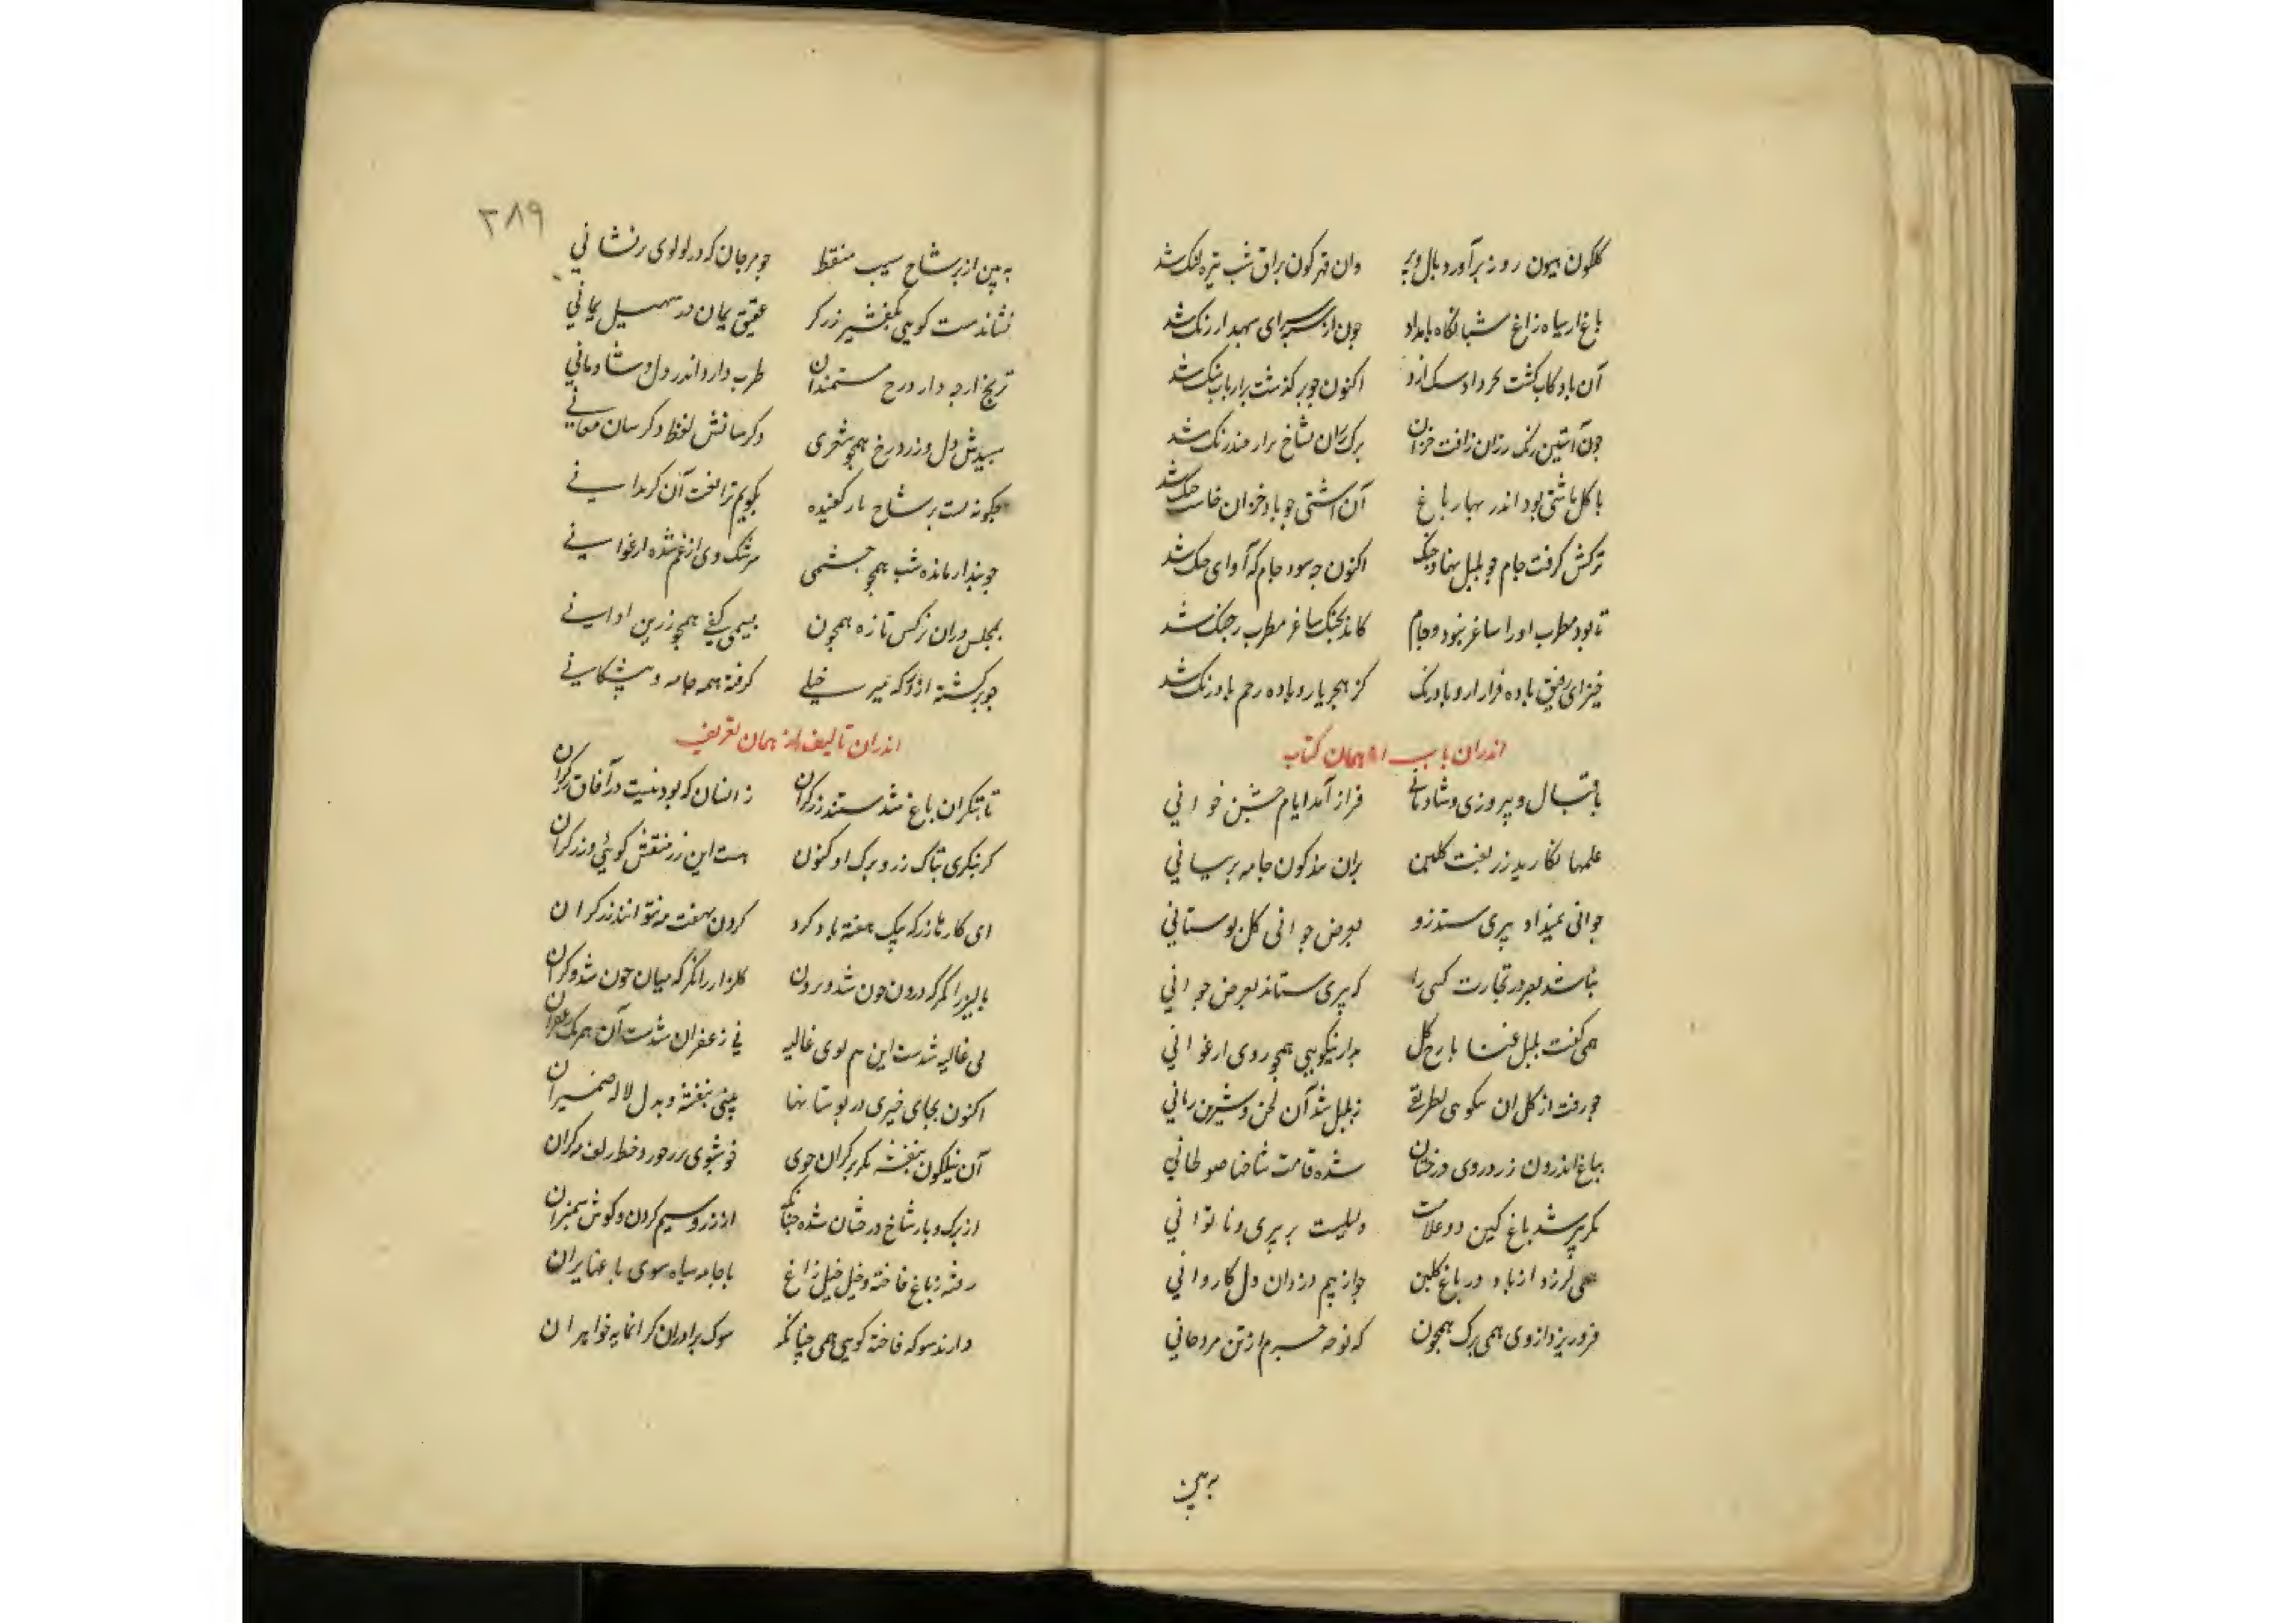 گلگون هیون روز برآورد بال و پر وان قیرگون براق شب تیره لنگ شد
باغ از سیاه زاغ شبانگاه بامداد چون از سرای سپهدار زنگ شد
آن باد کاب کشت اکنون چو بر گذشت بر ارباب شد
چون آستین رنگ رزان زافت خزان برک رزان بشاخ بر ار صد رنگ شد
با کل باشتی بود اندر بهار باغ آن اشتی چو باد خزان خاست جنک شد
ترکش گرفت جام چو بلبل نهاد چنک اکنون چه سود جام که آوای چنک شد
تا بود مطرب اورا ساغر نبود و جام کامد بچنک ساغر مطرب ز چنک شد
خیز ای رفیق باده فراز ار و بادرنک کز هجر یار و باده رخم بادرنک شد
اندران باب از همان کتاب
باقبال و پیروزی و شادمانی فراز آمد ایام جشن خزانی
علمها نگارید زربفت گلبن بران سذکون جامه پرنیانی
جوانی نمیداد پیری ستد زو بعوض جوانی کل بوستانی
نباشد بصر در تجارت کسی را که پیری ستاند بعوض جوانی
همی گفت بلبل غنا با رخ گل بدان نیکویی همچو روی ارغوانی
چو رفت از کل ان نیکویی بطریقی ز بلبل شد آن لحن و شیرین زبانی
بباغ اندرون زرد روی درختان شده قامت شاخها صولجانی
مکر پیر شد باغ کین دو علامت دلیلست بر پیری و ناتوانی
همی لرزد از باد در باغ گلبن چو از بیم دزدان دل کاروانی
فرو ریزد از وی همی برک همچون که توحه جسرم از تن مرد جانی
به بین
٢٨٩
به بین از بر شاخ سیب منقط چو مرجان که در لولوی برنشانی
نشاندست گویی بمنقش زرگر عقیق یمان در سهیل یمانی
ترنج ار چه دارد رخ مستمندان طرب دارد اندر دل و شادمانی
سپیدش دل و زرد رخ همچو شعری دگر سانش لفظ و دگر سان معانی
چگونه است بر شاخ نار کفیده بگویم ترا لغت آن گر ندانی
چو بیدار مانده شب همچو چشمی سرشک وی از غم شده ارغوانی
بمجلس دران نرگس تازه همچون بسیمین کفی همچو زرین اوانی
چو برگشته از کوکه میر خیلی گرفته همه جامه و پیشکانی
اندران تالیف از همان تعریف
تا بتکران باغ شدستند زرگران زانسان که بود نیست در آفاق زرگران
گر بنگری بتاک زر و برگ او کنون هست این زر منقش گویی و زرگران
ای کار تا زر که بیک هفته باد کرد کردن بهفت مه نتوانند زرگران
پالیز را نگر که درون چون شد و برون گلزار را نگر که میان چون شد و کران
بی غالیه شدست این هم بوی غالیه نی زعفران شدست آن همرنک زعفران
اکنون بجای خیری در بوستانها بینی بنفشه و بدل لاله ضمیران
آن نیلگون بنفشه نگر بر کران جوی خوشبوی بر خور و خط زلف دلبران
از برگ و بار شاخ درختان شده چنانک از زر و سیم گردن و گوش سمنبران
رفته ز باغ فاخته و خیل خیل زاغ با جامه سیاه سوی باغها پران
دارند سوک فاخته گویی همی چنانک سوک برادران گرانمایه خواهران